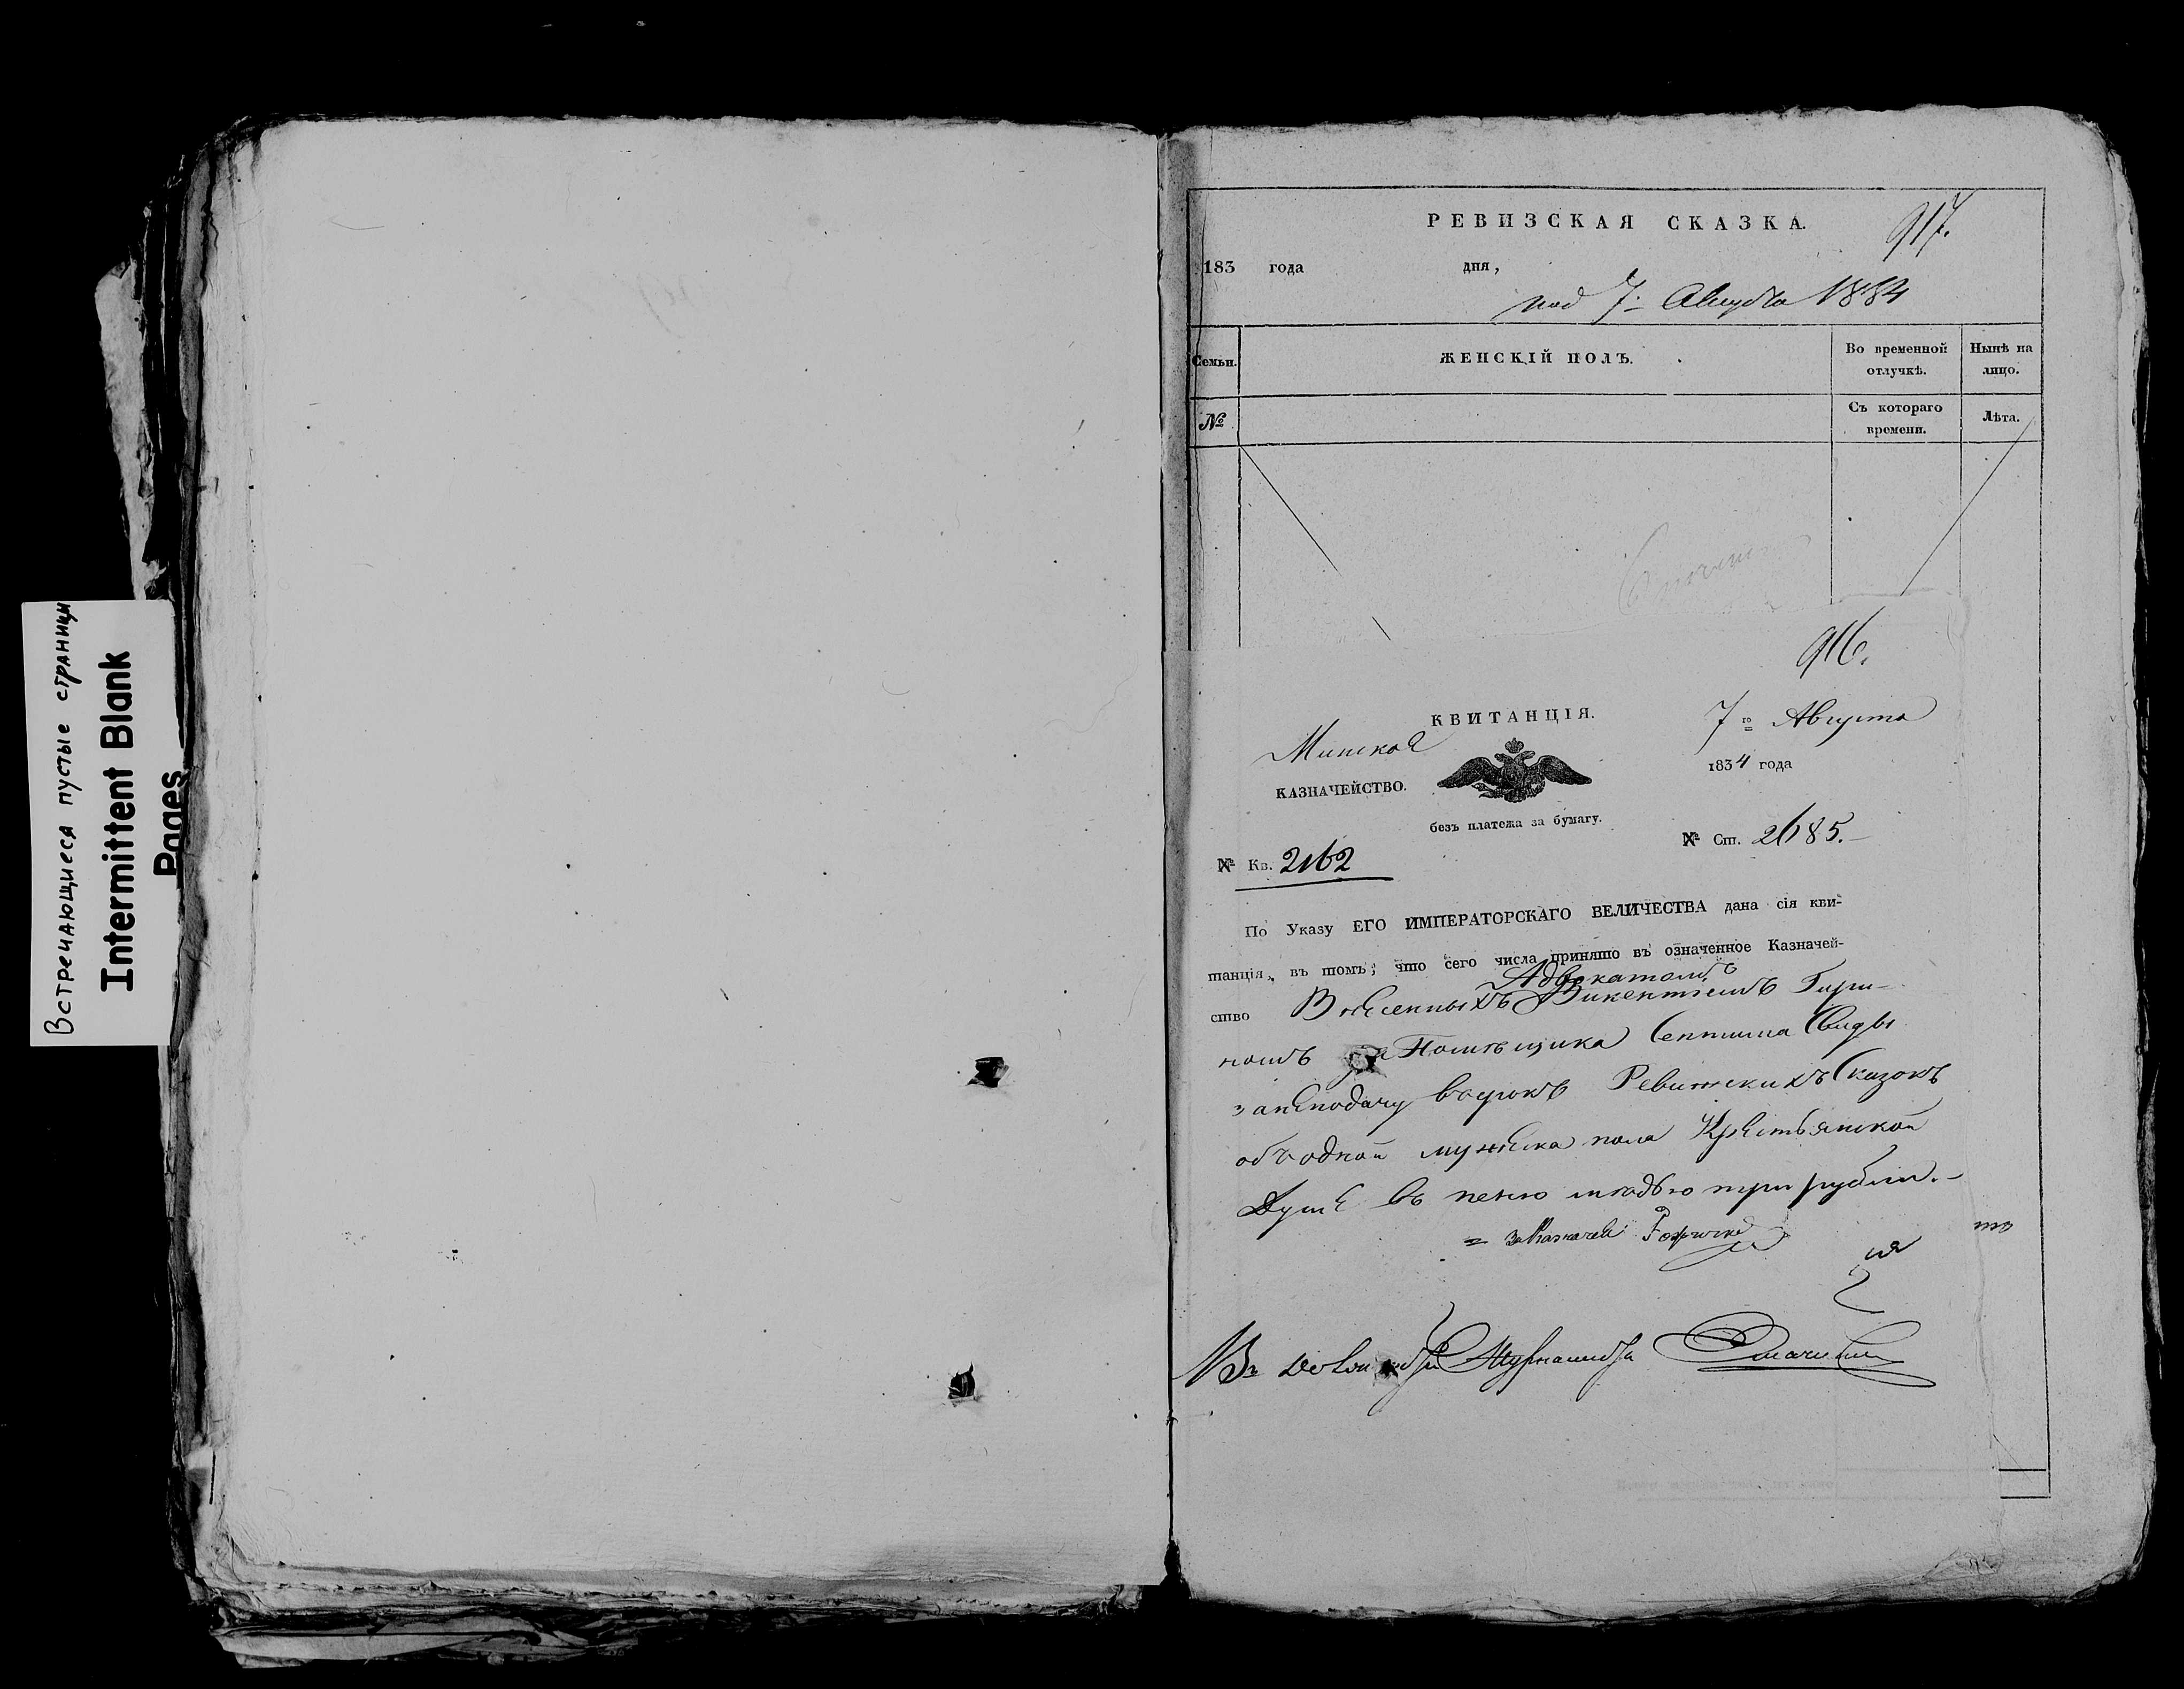 Встречающиеся пустые страницы
Intermittent Blank
Pages
РЕВИЗСКАЯ СКАЗКА.
917.
183 года дня,
под 7. Августа 1834
Семьи.
ЖЕНСКІЙ ПОЛЪ.
Во временной отлучкѣ.
Нынѣ на лицо.
№
Съ котораго времени.
Лѣта.
916.
КВИТАНЦІЯ.
7го Августа
Минское
1834 года
КАЗНАЧЕЙСТВО.
безъ платежа за бумагу.
№ Ст. 2685.
№ Кв. 2162
По Указу ЕГО ИМПЕРАТОРСКАГО ВЕЛИЧЕСТВА дана сія кви-
танція, въ томъ; что сего числа принято въ означенное Казначей-
Адвокатомъ
ство Внесенныхъ Викентіемъ Гири-
номъ Помѣщика Септима Свиды
занеподачу всрокъ Ревижскихъ Сказокъ
обˮодной мужеска пола Крестьянской
Душе въ пеню мѣдью три рубли.
за Казначея